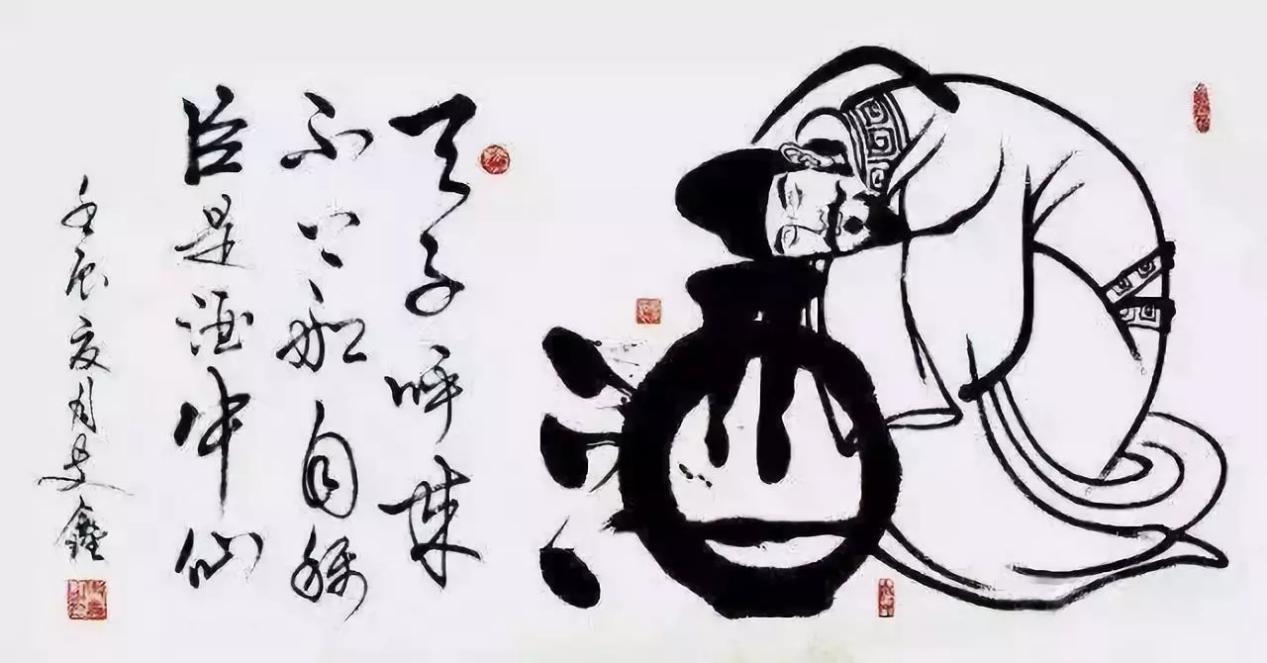 天子呼来
不上船自称
臣是酒中仙
壬辰夏月鑫
酒